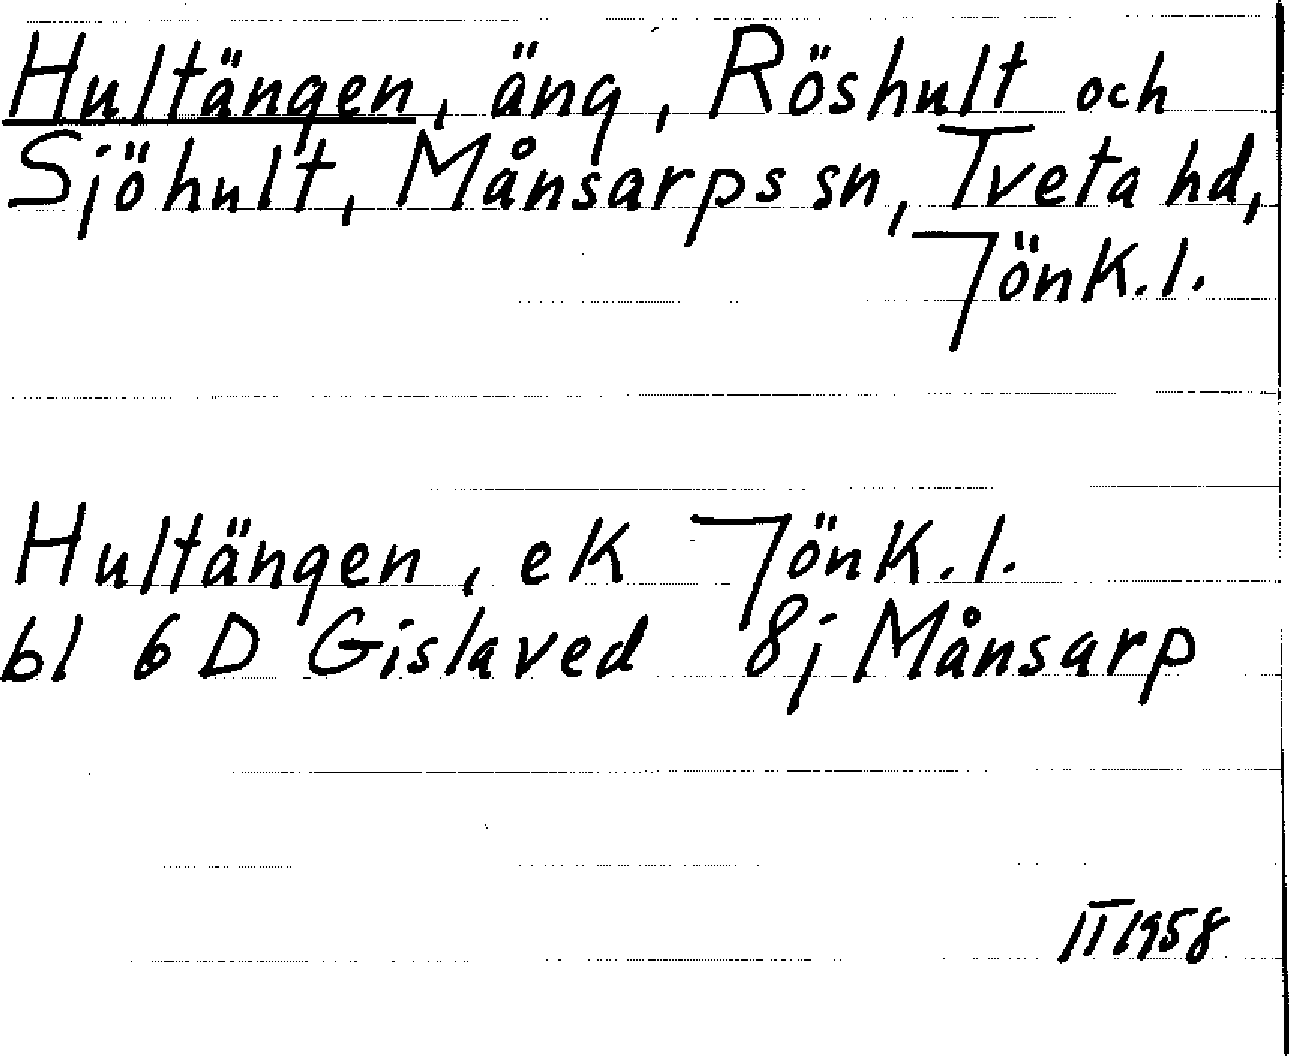 Hultängen, äng, Röshult och
Sjöhult, Månsarps sn, Tveta hd,
Jönk.l.
Hultängen, ek Jönk.l.
bl 6 D Gislaved 8j Månsarp
II 1958